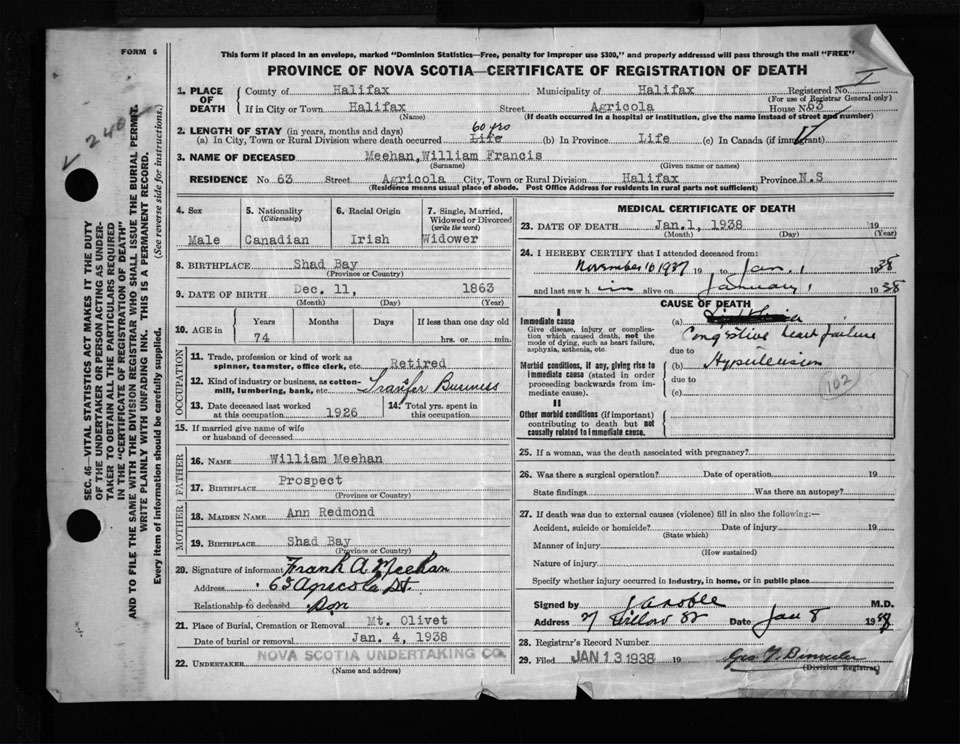 FORM 6
This form if placed in an envelope, marked "Dominion Statistics—Free, penalty for improper use $300," and properly addressed will pass through the mail "FREE"
PROVINCE OF NOVA SCOTIA—CERTIFICATE OF REGISTRATION OF DEATH
1. PLACE OF DEATH
County of Halifax Municipality of Halifax Registered No.
(For use of Registrar General only)
If in City or Town Halifax Street Agricola House No. 63
(Name) (If death occurred in a hospital or institution, give the name instead of street and number)
2. LENGTH OF STAY (in years, months and days) 60 yrs
(a) In City, Town or Rural Division where death occurred Life (b) In Province Life (c) In Canada (if immigrant)
3. NAME OF DECEASED Meehan, William Francis
(Surname) (Given name or names)
RESIDENCE No 63 Street Agricola City, Town or Rural Division Halifax Province N.S
(Residence means usual place of abode. Post Office Address for residents in rural parts not sufficient)
4. Sex
Male
5. Nationality (Citizenship)
Canadian
6. Racial Origin
Irish
7. Single, Married, Widowed or Divorced (write the word)
Widower
8. BIRTHPLACE Shad Bay
(Province or Country)
9. DATE OF BIRTH Dec. 11, 1863
(Month) (Day) (Year)
10. AGE in Years Months Days If less than one day old
74 hrs. or min.
OCCUPATION
11. Trade, profession or kind of work as spinner, teamster, office clerk, etc. Retired
12. Kind of industry or business, as cotton-mill, lumbering, bank, etc. Transfer Business
13. Date deceased last worked at this occupation 1926
14. Total yrs. spent in this occupation
15. If married give name of wife or husband of deceased
FATHER
16. NAME William Meehan
17. BIRTHPLACE Prospect
(Province or Country)
MOTHER
18. MAIDEN NAME Ann Redmond
19. BIRTHPLACE Shad Bay
(Province or Country)
20. Signature of informant Frank A Meehan
Address 63 Agricola St.
Relationship to deceased Son
21. Place of Burial, Cremation or Removal Mt. Olivet
Date of burial or removal Jan. 4, 1938
22. UNDERTAKER NOVA SCOTIA UNDERTAKING CO.
(Name and address)
MEDICAL CERTIFICATE OF DEATH
23. DATE OF DEATH Jan. 1, 1938 19
(Month) (Day) (Year)
24. I HEREBY CERTIFY that I attended deceased from:
November 10 1937 19 to Jan. 1 1938
and last saw him alive on January 1 1938
CAUSE OF DEATH
I
Immediate cause
Give disease, injury or complication which caused death, not the mode of dying, such as heart failure, asphyxia, asthenia, etc.
(a)
Congestive heart failure
due to
Morbid conditions, if any, giving rise to immediate cause (stated in order proceeding backwards from immediate cause).
(b) Hypertension
due to
(c)
102
II
Other morbid conditions (if important) contributing to death but not causally related to immediate cause.
25. If a woman, was the death associated with pregnancy?
26. Was there a surgical operation? Date of operation 19
State findings Was there an autopsy?
27. If death was due to external causes (violence) fill in also the following:—
Accident, suicide or homicide? Date of injury 19
(State which)
Manner of injury
(How sustained)
Nature of injury
Specify whether injury occurred in industry, in home, or in public place
Signed by M.D.
Address Willow St Date Jan 8 1938
28. Registrar's Record Number
29. Filed JAN 13 1938 19
(Division Registrar)
SEC. 46—VITAL STATISTICS ACT MAKES IT THE DUTY OF THE UNDERTAKER OR PERSON ACTING AS UNDERTAKER TO OBTAIN ALL THE PARTICULARS REQUIRED IN THE "CERTIFICATE OF REGISTRATION OF DEATH"
AND TO FILE THE SAME WITH THE DIVISION REGISTRAR WHO SHALL ISSUE THE BURIAL PERMIT.
WRITE PLAINLY WITH UNFADING INK. THIS IS A PERMANENT RECORD.
Every item of information should be carefully supplied. (See reverse side for instructions.)